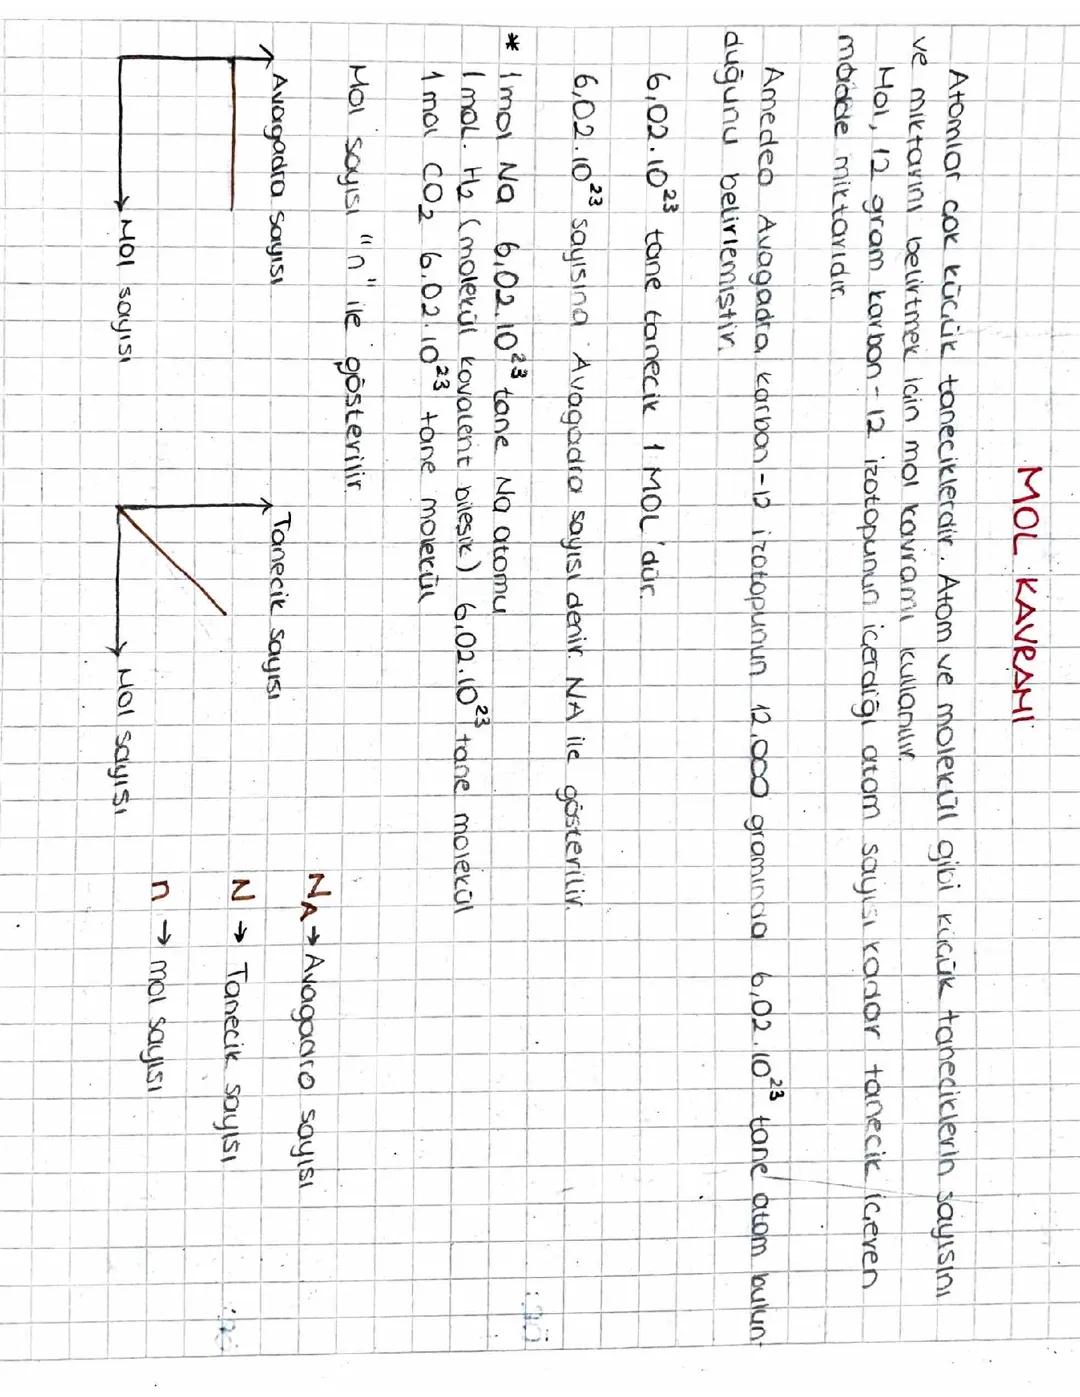 MOL KAVRAMI
Atomlar çok küçük taneciklerdir. Atom ve molekül gibi küçük taneciklerin sayısını
ve miktarını belirtmek için mol kavramı kullanılır.
Mol, 12 gram karbon-12 izotopunun içerdiği atom sayısı kadar tanecik içeren
madde miktarıdır.
Amedeo Avagadro, karbon-12 izotopunun 12,000 gramında 6,02.10²³ tane atom bulun-
duğunu belirlemiştir.
6,02.10²³ tane tanecik 1 MOL'dür.
6,02.10²³ sayısına Avagadro sayısı denir. NA ile gösterilir.
* 1 mol Na 6,02.10²³ tane Na atomu
1 mol. H₂ (molekül kovalent bileşik) 6,02.10²³ tane molekül
1 mol CO₂ 6.02.10²³ tane molekül
Mol sayısı "n" ile gösterilir.
Avagadro sayısı
Mol sayısı
Tanecik sayısı
Mol sayısı
N_A → Avagadro sayısı
N → Tanecik sayısı
n → mol sayısı